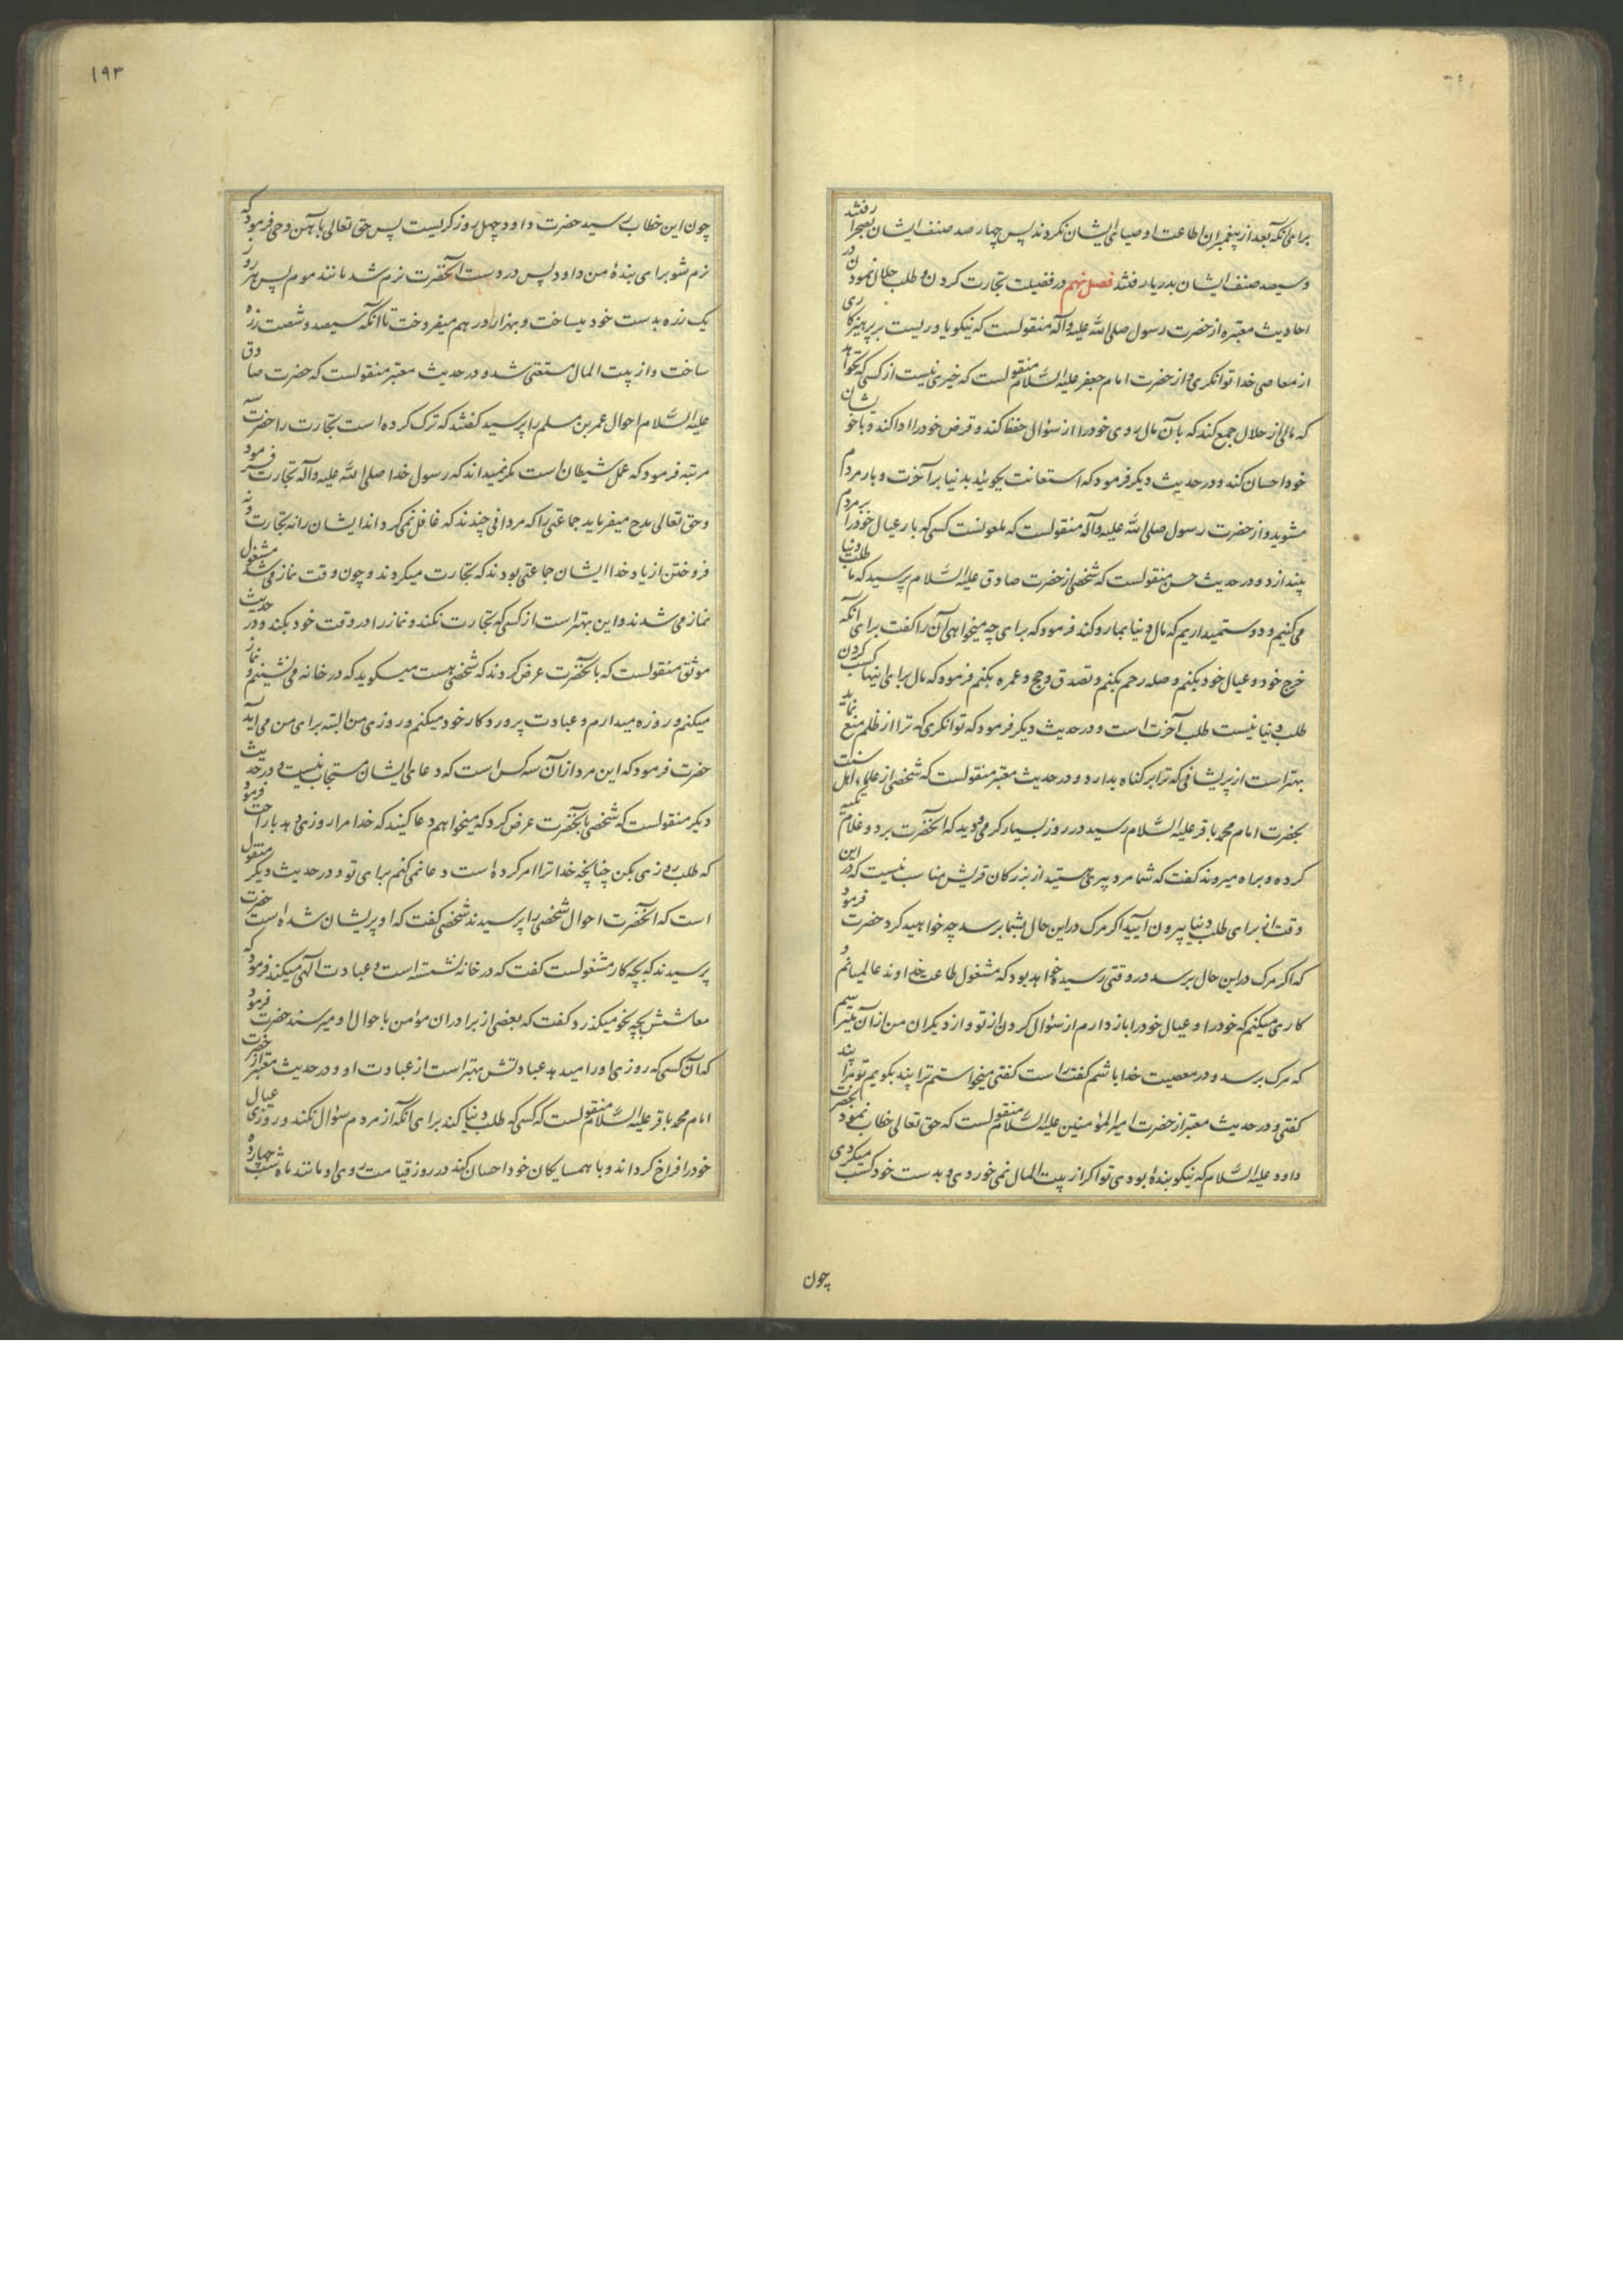 برای آنکه بعد از پیغمبران اطاعت اوصیای ایشان نکردند پس چهار صد صنف ایشان بصحرا رفتند
و سیصد صنف ایشان بدریا رفتند فصل نهم در فضیلت تجارت کردن و طلب حلال نمودن در
احادیث معتبره از حضرت رسول صلی الله علیه وآله منقولست که نیکو یاوریست بر پرهیزکاری
از معاصی خدا توانکری و از حضرت امام جعفر علیه السلام منقولست که خیری نیست از کسی که نخواهد
که مالی از حلال جمع کند که بآن مال روی خود را از سؤال حفظ کند و قرض خود را ادا کند و با خویشان
خود احسان کند و در حدیث دیکر فرمود که استعانت بجوئید بدنیا بر آخرت و بار مردم
مشوید و از حضرت رسول صلی الله علیه وآله منقولست که ملعونست کسی که بار عیال خود را بر مردم
بیندازد و در حدیث حسن منقولست که شخصی از حضرت صادق علیه السلام پرسید که ما طلب دنیا
می کنیم و دوست میداریم که مال دنیا بما رو کند فرمود که برای چه میخواهی آن را کفت برای آنکه
خرج خود و عیال خود بکنم و صله رحم بکنم و تصدق و حج و عمره بکنم فرمود که مال برای اینها کسب کردن
طلب دنیا نیست طلب آخرت است و در حدیث دیکر فرمود که توانکری که ترا از ظلم منع نماید
بهتر است از پریشانی که ترا بر کناه بدارد و در حدیث معتبر منقولست که شخصی از علماء اهل سنت
بحضرت امام محمد باقر علیه السلام رسید در روز بسیار کرمی و دید که آنحضرت بر دو غلام تکیه
کرده و براه میروند کفت که شما مرد پیری هستید از بزرکان قریش مناسب نیست که در این
وقت از برای طلب دنیا بیرون آیید اکر مرک در این حال بشما برسد چه خواهید کرد حضرت فرمود
که اکر مرک در این حال برسد در وقتی رسیده خواهد بود که مشغول طاعت خداوند عالمیانم و
کاری میکنم که خود را و عیال خود را باز دارم از سؤال کردن از تو و از دیکران من از آن میترسیم
که مرک برسد و در معصیت خدا باشم کفت راست کفتی میخواستم ترا پند بکویم تو مرا پند
کفتی و در حدیث معتبر از حضرت امیر المؤمنین علیه السلام منقولست که حق تعالی خطاب نمود بحضرت
داود علیه السلام که نیکو بندهٔ بودی تو اکر از بیت المال نمی خوردی و بدست خود کسب میکردی
چون
۱۹۳
چون این خطاب رسید حضرت داود چهل روز کریست پس حق تعالی بآهن وحی فرمود که
نرم شو برای بندهٔ من داود پس در دست آنحضرت نرم شد مانند موم پس هر روز
یک زره بدست خود میساخت و بهزار درهم میفروخت تا آنکه سیصد و شصت زره
ساخت و از بیت المال مستغنی شد و در حدیث معتبر منقولست که حضرت صادق
علیه السلام احوال عمر بن مسلم را پرسید کفتند که ترک کرده است تجارت را حضرت سه
مرتبه فرمود که عمل شیطان است مکر نمیداند که رسول خدا صلی الله علیه وآله تجارت میفرمود
و حق تعالی مدح میفرماید جماعتی را که مردانی چندند که غافل نمی کرداند ایشان را نه تجارت و نه
فروختن از یاد خدا ایشان جماعتی بودند که تجارت میکردند و چون وقت نماز می شد مشغول
نماز می شدند و این بهتر است از کسی که تجارت نکند و نماز را در وقت خود بکند و در حدیث
موثق منقولست که بآنحضرت عرض کردند که شخصی هست میکوید که در خانه می نشینم و نماز
میکنم و روزه میدارم و عبادت پرورد کار خود میکنم و روزی من البته برای من می آید
حضرت فرمود که این مرد از آن سه کس است که دعای ایشان مستجاب نیست و در حدیث
دیکر منقولست که شخصی بآنحضرت عرض کرد که میخواهم دعا کنید که خدا مرا روزی دهد براحت فرمود
که طلب روزی بکن چنانچه خدا ترا امر کرده است دعا نمی کنم برای تو و در حدیث دیکر منقول
است که آنحضرت احوال شخصی را پرسیدند شخصی کفت که او پریشان شده است حضرت
پرسیدند که بچه کار مشغولست کفت که در خانه نشسته است و عبادت الهی میکند فرمود که
معاشش بچه نحو میکذرد کفت که بعضی از برادران مؤمن باحوال او میرسند حضرت فرمود
که آن کسی که روزی او را میدهد عبادتش بهتر است از عبادت او و در حدیث معتبر از حضرت
امام محمد باقر علیه السلام منقولست که کسی که طلب دنیا کند برای آنکه از مردم سؤال نکند و روزی عیال
خود را فراخ کرداند و با همسایکان خود احسان کند در روز قیامت روی او مانند ماه شب چهارده